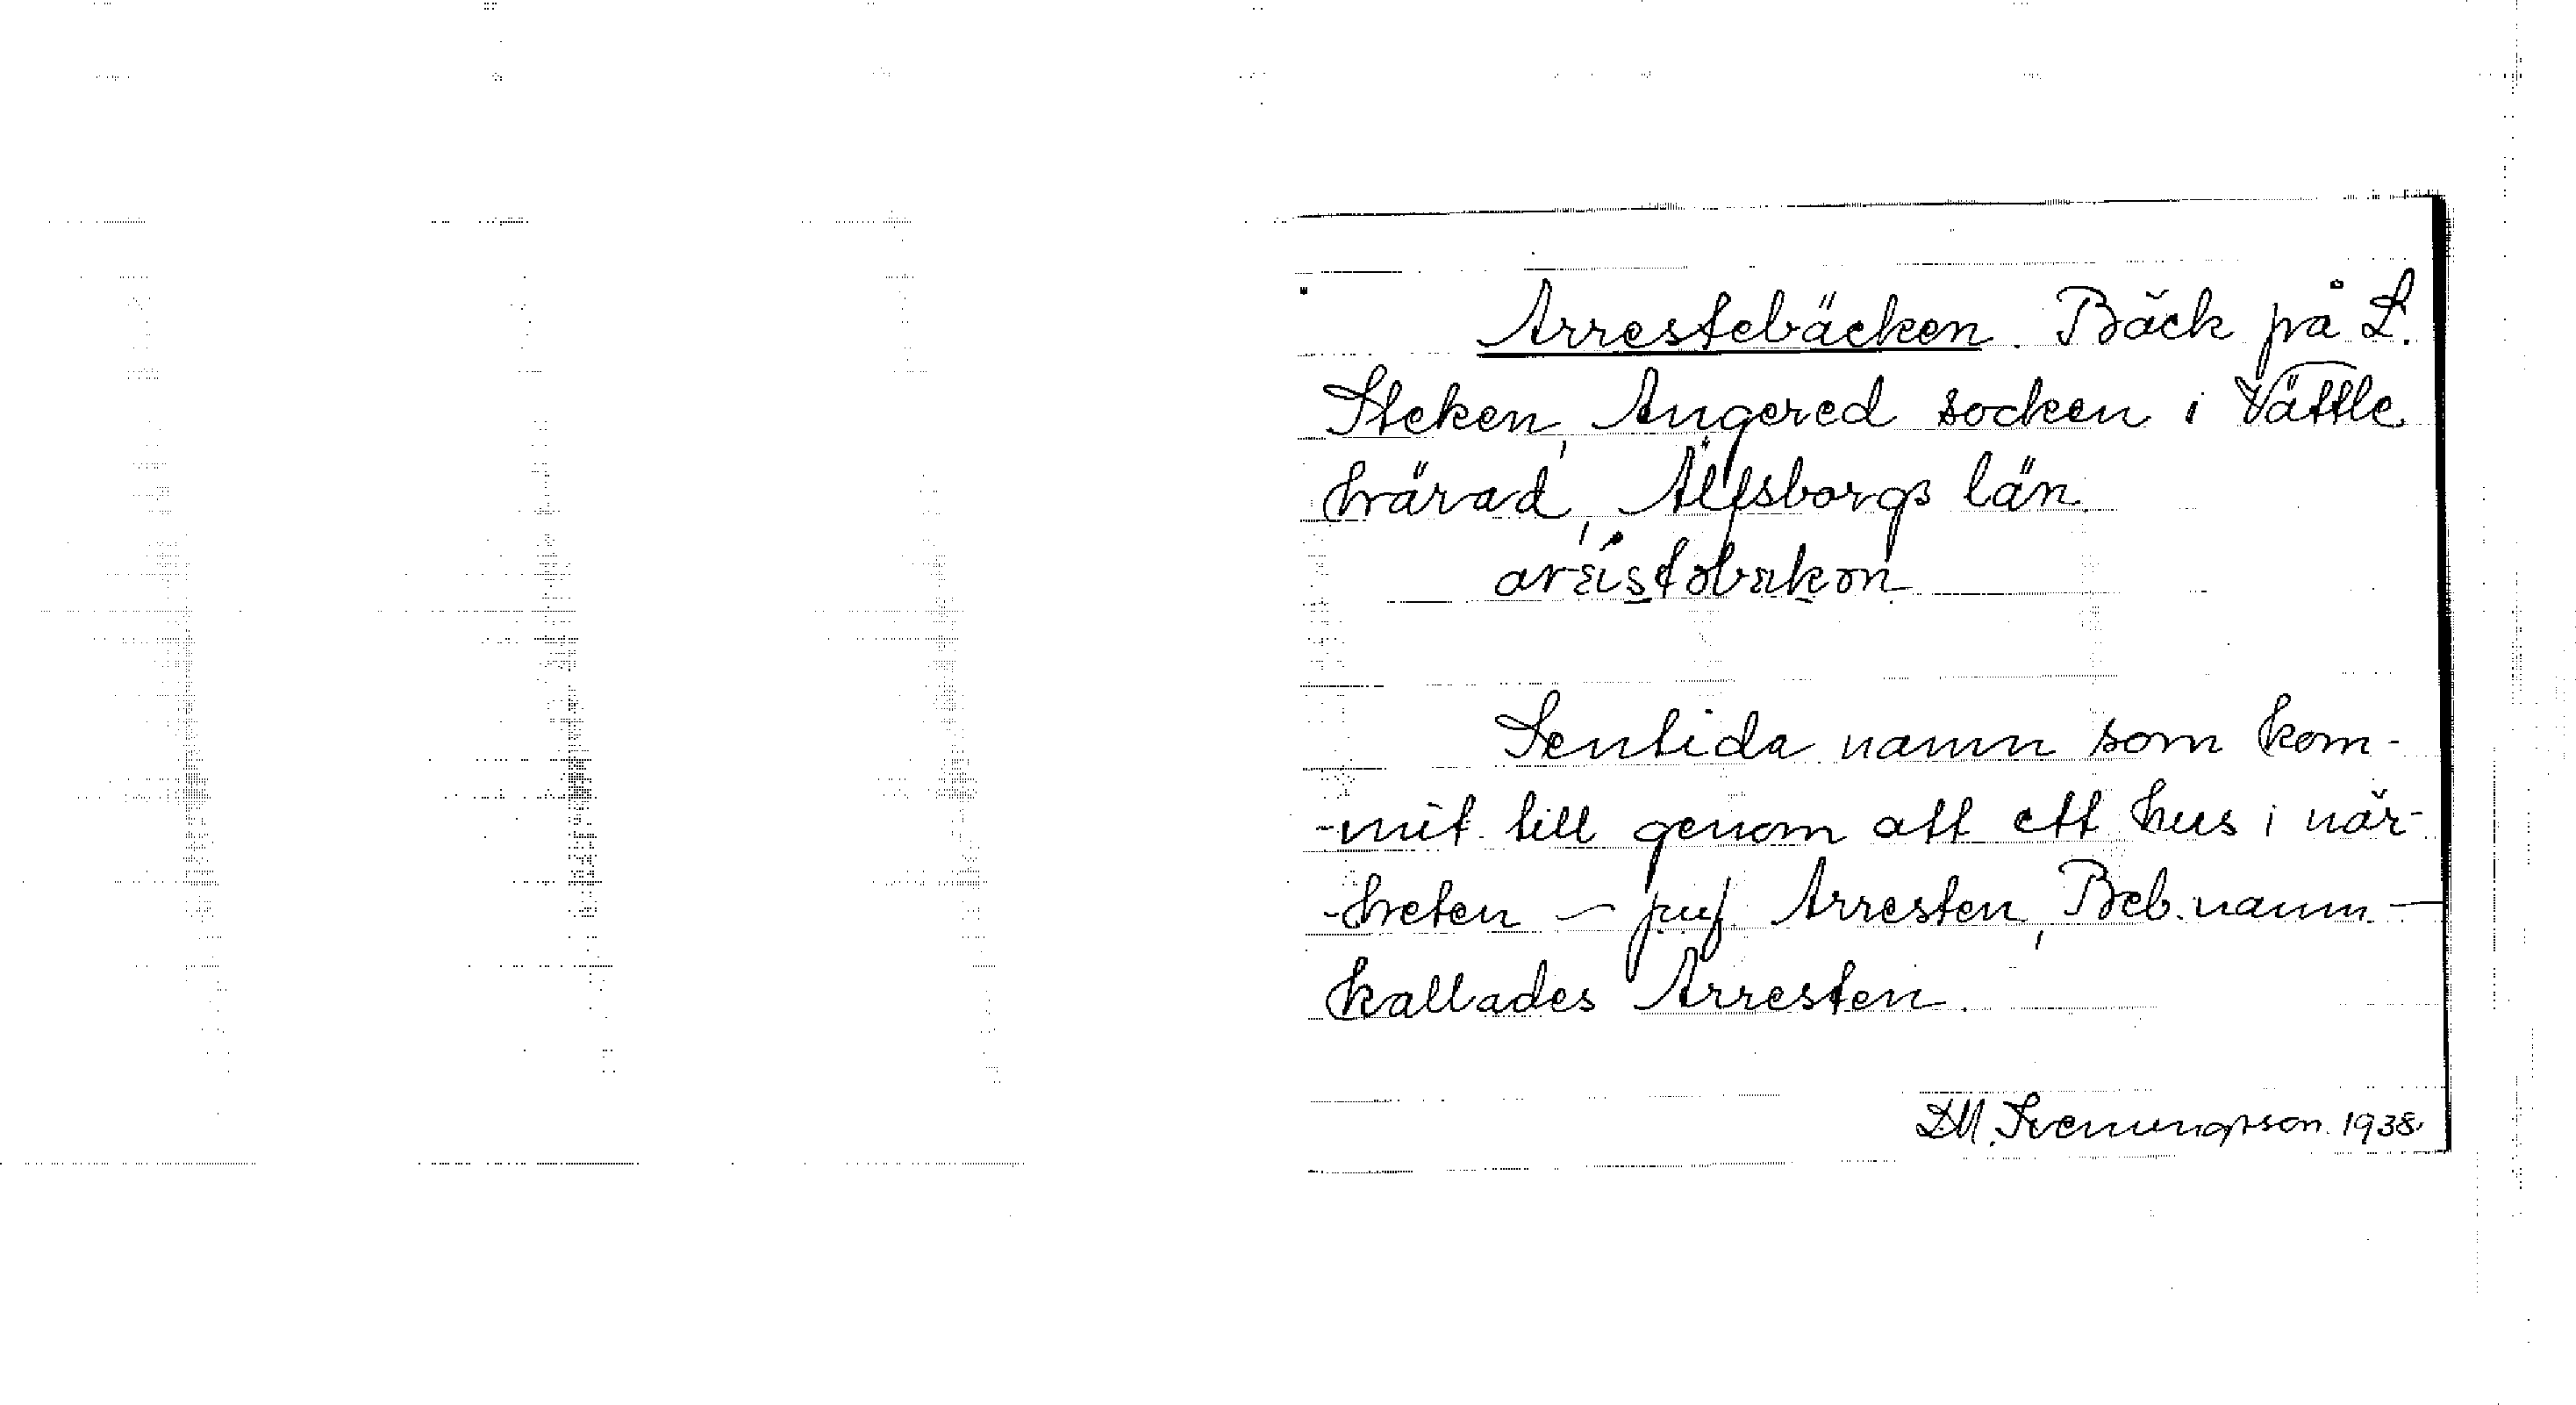 Arrestebäcken. Bäck på L.
Steken, Angered socken i Vättle
härad, Älfsborgs län.
Sentida namn som kom-
-mit till genom att ett hus i när-
-heten – jmf. Arresten, Beb. namn –
kallades Arresten.
D.M. Svenungsson. 1938.